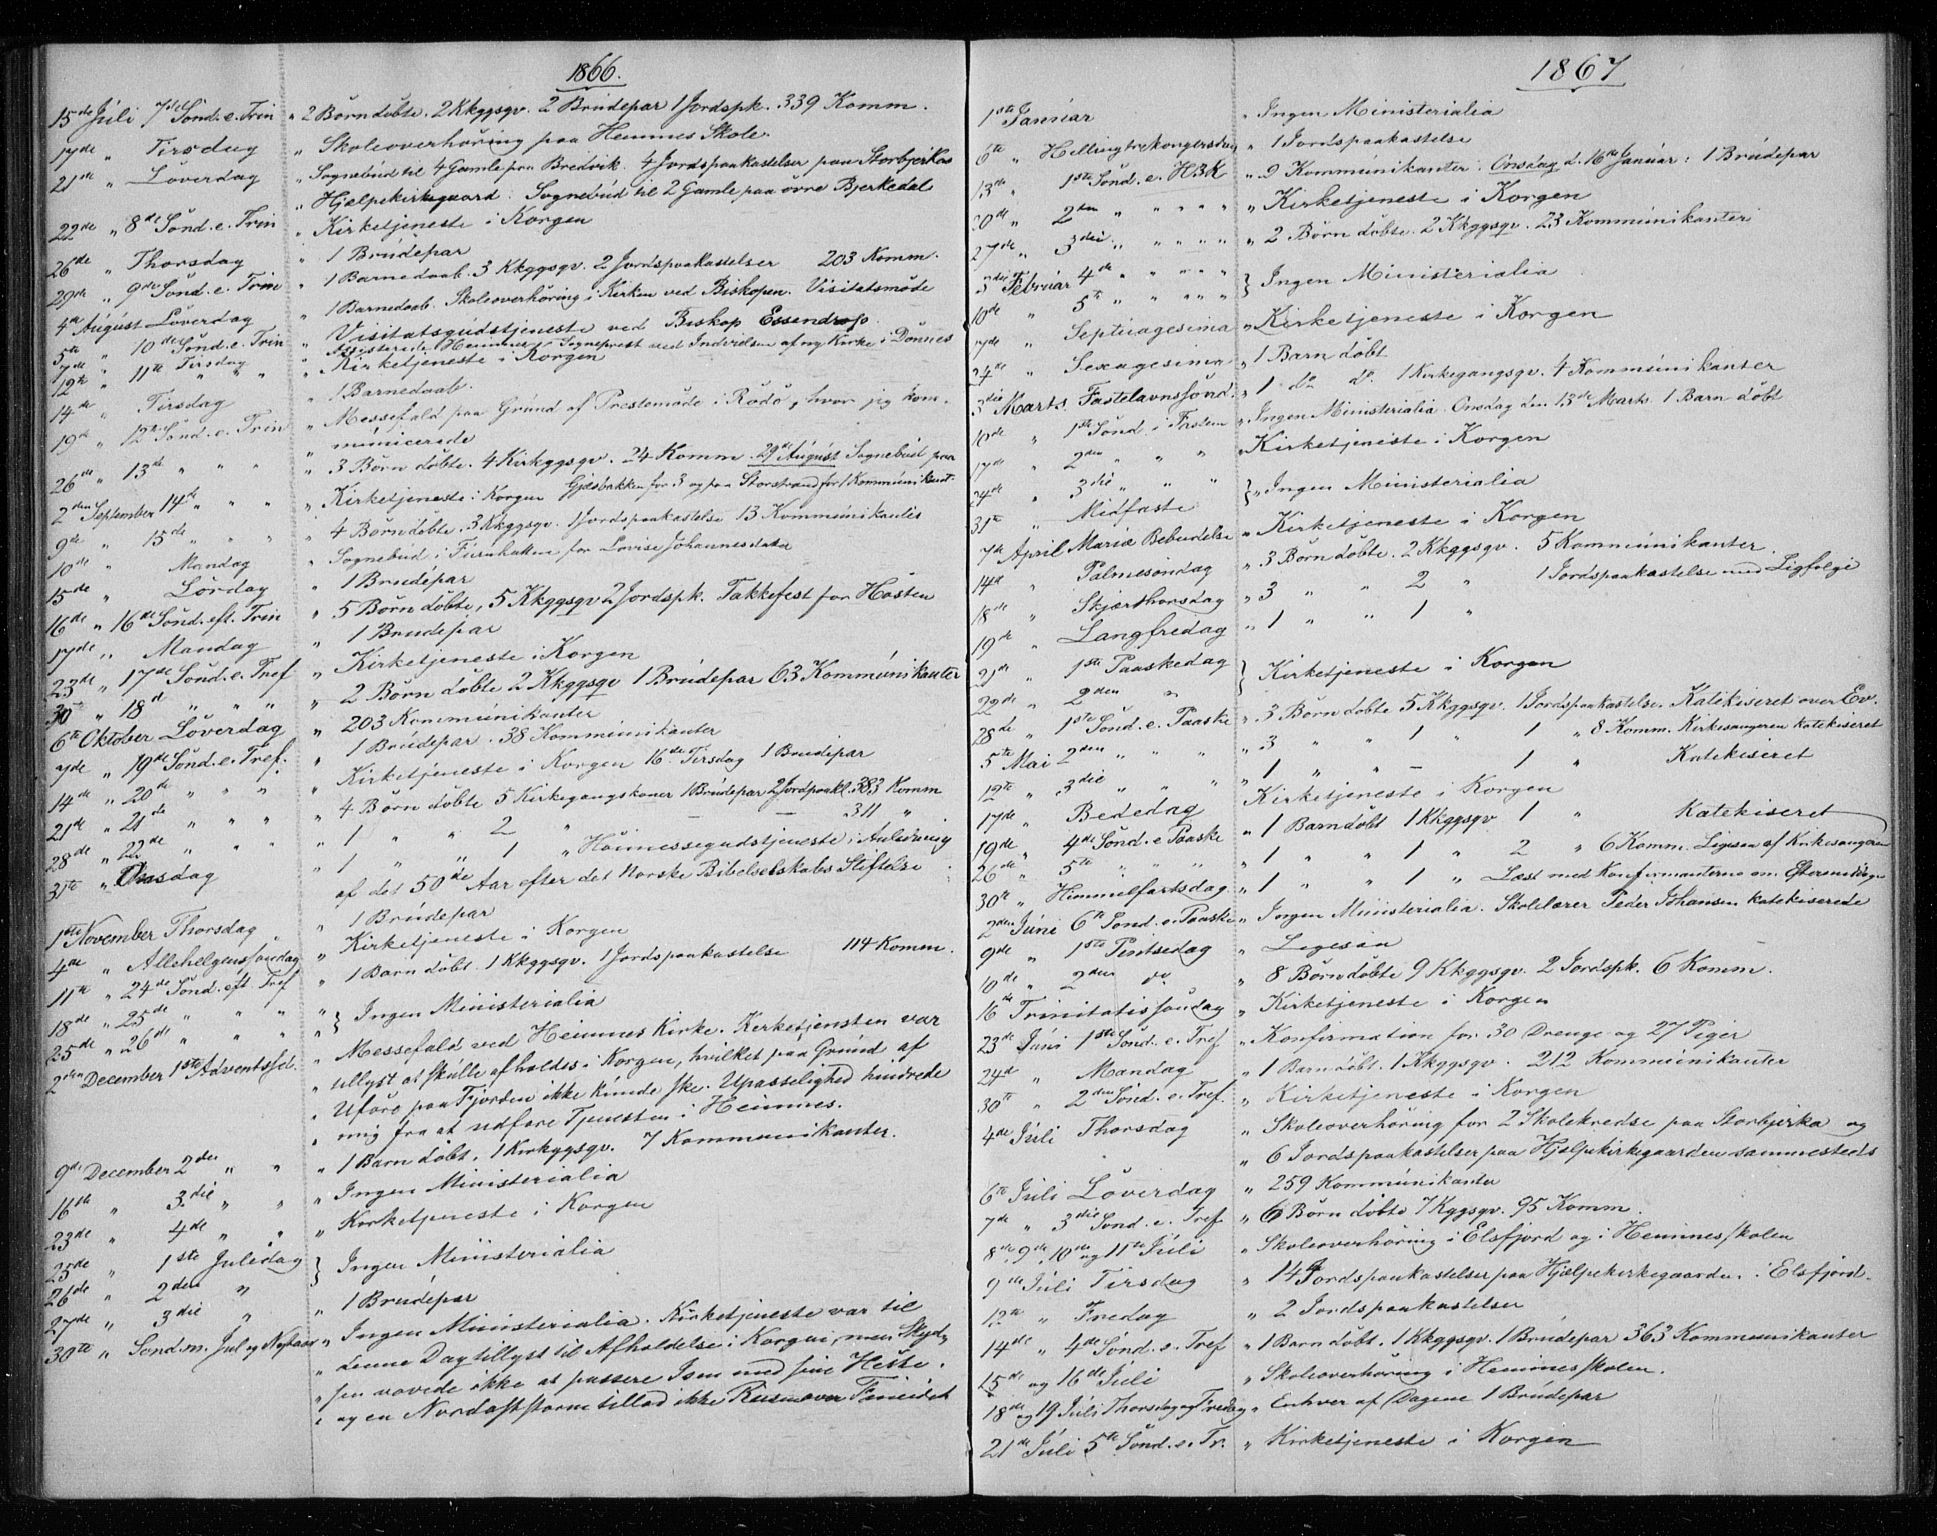 1866.
15de Juli 7de Sönd. e. Trin " 2 Börn döbte. 2 Kkggsqv. 2 Brudepar 1 Jordspk. 339 Komm.
17de " Tirsdag " Skoleoverhöring paa Hemnes Skole.
21de " Löverdag " Sognebud til 4 Gamle paa Bredvik. 4 Jordspaakastelser paa Storbjerkas
" Hjælpekirkegaard. Sognebud til 2 Gamle paa övre Bjerkedal
22de " 8de Sönd. e. Trin " Kirketjeneste i Korgen
26de " Thorsdag " 1 Brudepar
29de " 9de Sönd. e. Trin " 1 Barnedaab. 3 Kkggsqv. 2 Jordspaakastelser 203 Komm.
4de August Löverdag " 1 Barnedaab. Skoleoverhöring i Kirken ved Biskopen. Visitatsmöde
5te " 10de Sönd. e. Trin " Visitatsgudstjeneste ved Biskop Essendrop
7de " Tirsdag " Assisterede Hemnes Sogneprest ved Indvielsen af ny Kirke i Dönnes
12te " 11te " " " " Kirketjeneste i Korgen
14de " Tirsdag " 1 Barnedaab.
19de " 12te Sönd. e. Trin " Messefald paa Grund af Prestemöde i Rödö, hvor jeg kom-
" municerede
26de " 13de " " " " 3 Börn döbte. 4 Kirkggsqv. 24 Komm. 29de August Sognebud paa
2den September 14de " " " " Kirketjeneste i Korgen Gjæsbakken for 3 og paa Storstrand for 1 Kommunikant.
9de " 15de " " " " 4 Börn döbte. 3 Kkggsqv. 1 Jordspaakastelse 13 Kommunikantes
10de " Mandag " Sognebud i for Lovise Johannesdater
15de " Lördag " 1 Brudepar
16de " 16de Sönd. eft. Trin " 5 Börn döbte, 5 Kkggsqv 2 Jordspk. Takkefest for Hösten
17de " Mandag " 1 Brudepar
23de " 17de Sönd. e. Tref " Kirketjeneste i Korgen
30te " 18de " " " " 2 Börn döbte 2 Kkggsqv 1 Brudepar 63 Kommunikanter
6te Oktober Löverdag " 203 Kommunikanter
7de " 19de Sönd. e. Tref. " 1 Brudepar. 38 Kommunikanter
14de " 20de " " " " Kirketjeneste i Korgen 16de Tirsdag 1 Brudepar
21de " 21de " " " " 4 Börn döbte 5 Kirkegangskoner 1 Brudepar 2 Jordpaak. 383 Komm
28de " 22de " " " " 1 " " 2 " — — 311 "
31te " Onsdag " 1 " " 1 " Höimessegudstjeneste i Anledning
af det 50de Aar efter det Norske Bibelselskabs Stiftelse
1ste November Thorsdag " 1 Brudepar
4de " Allehelgenssöndag " Kirketjeneste i Korgen
11te " 24de Sönd. eft. Tref " 1 Barn döbt. 1 Kkggsqv. 1 Jordspaakastelse 114 Komm.
18de " 25de " " " " } Ingen Ministerialia
25de " 26de " " "
2den December 1ste Adventssd. " Messefald ved Hemnes Kirke. Kirketjensten var
" tillyst at skulle afholdes i Korgen, hvilket paa Grund af
" Uföre paa Fjorden ikke kunde ske. Upasselighed hindrede
" mig fra at udföre Tjenesten i Hemnes.
9de December 2den " " " 1 Barn döbt, 1 Kirkggsqv. 7 Kommunikanter.
16de " 3die " " " Ingen Ministerialia
23de " 4de " " " Kirketjeneste i Korgen
25de " 1ste Juledag } Ingen Ministerialia
26de " 2den "
27de " 3die " " 1 Brudepar
30te " Sönd. m. Jul og Nytaar " Ingen Ministerialia. Kirketjeneste var til
denne Dag tillyst til Afholdelse i Korgen, men Skyds-
" sen vovede ikke at passere Isen med sine Heste.
" og en Nordoststorm tillod ikke Reisen over

1867
1ste Januar " Ingen Ministerialia
6te " Helligtrekongersdag " 1 Jordspaakastelse
13de " 1ste Sönd. e. H3K " 9 Kommunikanter. Onsdag d. 16de Januar: 1 Brudepar
20de " 2den " " " " " Kirketjeneste i Korgen
27de " 3die " " " " " 2 Börn döbte. 2 Kkggsqv. 23 Kommunikanter
3die Februar 4de " " " " } Ingen Ministerialia
10de " 5te " " " "
17de " Septuagesima " Kirketjeneste i Korgen
24de " Sexagesima " 1 Barn döbt
3die Marts Fastelavnssönd. " 1 do do. 1 Kirkegangsqv. 4 Kommunikanter
10de " 1ste Sönd. i Fasten " Ingen Ministerialia. Onsdag den 13de Marts 1 Barn döbt
17de " 2den " " " " Kirketjeneste i Korgen
24de " 3die " " " } " Ingen Ministerialia
31te " Midfaste
7de April Mariæ Bebudelse " Kirketjeneste i Korgen
14de " Palmesöndag " 3 Börn döbte. 2 Kkggsqv. 5 Kommunikanter.
18de " Skjærthorsdag " 3 " " 2 " 1 Jordspaakastelse med Ligfölge
19de " Langfredag " 1 " " 1 "
21de " 1ste Paaskedag } Kirketjeneste i Korgen
22de " 2den "
28de " 1ste Sönd. e. Paaske " 3 Börn döbte 5 Kkggsqv. 1 Jordspaakastelse. Katekiseret over Ev.
5te Mai 2den " " " " 3 " " 1 " 1 " 8 Komm. Kirkesangeren katekiseret
12te " 3die " " " 1 " " — 1 " Katekiseret
17de " Bededag Kirketjeneste i Korgen
19de " 4de Sönd. e Paaske " 1 Barn döbt 1 Kkggsqv 1 " Katekiseret
26de " 5te " " " " 1 " " 1 " 2 " 6 Komm. Ligesaa af Kirkesangeren
30te " Himmelfartsdag " 1 " " 1 " Læst med Konfirmanterne om Eftermiddagen
2den Juni 6te Sönd. e. Paaske " Ingen Ministerialia. Skolelærer Peder Johansen katekiserede
9de " 1ste Pintsedag " Ligesaa
10de " 2den do " 8 Börn döbte 9 Kkggsqv. 2 Jordspk. 6 Komm.
16de Trinitatissöndag " Kirketjeneste i Korgen
23de Juni 1ste Sönd. e. Tref " Konfirmation for 30 Drenge og 27 Piger
24de " Mandag " 1 Barn döbt. 1 Kkggsqv. 212 Kommunikanter
30te " 2den Sönd. e. Tref. " Kirketjeneste i Korgen
4de Juli Thorsdag " Skoleoverhöring for 2 Skolekredse paa Storbjerka og
" 6 Jordspaakastelser paa Hjælpekirkegaarden sammesteds
6te Juli Löverdag " 259 Kommunikanter
7de " 3die Sönd. e. Tref " 6 Börn döbte 7 Kggsqv. 95 Komm.
8de, 9de, 10de og 11te Juli " Skoleoverhöring i Elsfjord og i Hemnesskolen
9de Juli Tirsdag " 14 Jordspaakastelser paa Hjælpekirkegaarden i Elsfjord.
12te " Fredag " 2 Jordspaakastelser
14de " 4de Sönd. e. Tref " 1 Barn döbt. 1 Kkggsqv. 1 Brudepar 363 Kommunikanter
15de og 16de Juli " Skoleoverhöring i Hemnesskolen.
18de og 19 Juli Thorsdag og Fredag " Enhver af Dagene 1 Brudepar
21de Juli 5te Sönd. e. Tr. " Kirketjeneste i Korgen